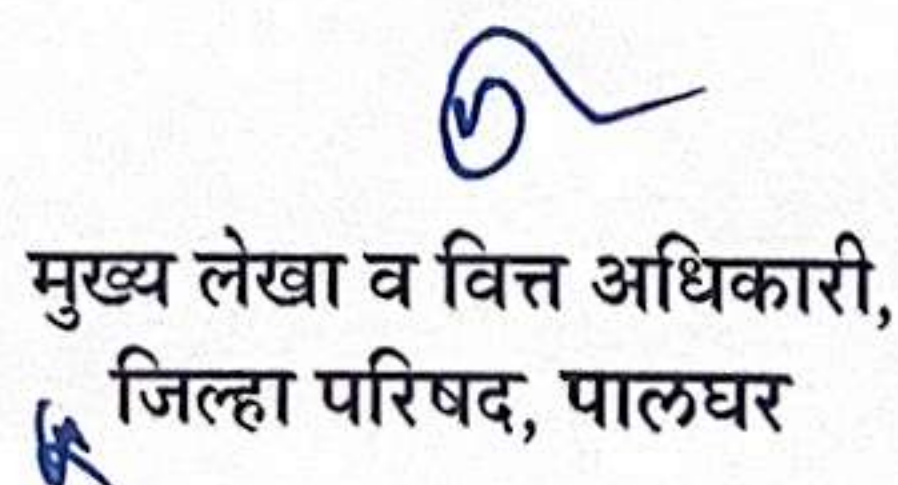 मुख्य लेखा व वित्त अधिकारी,
जिल्हा परिषद, पालघर